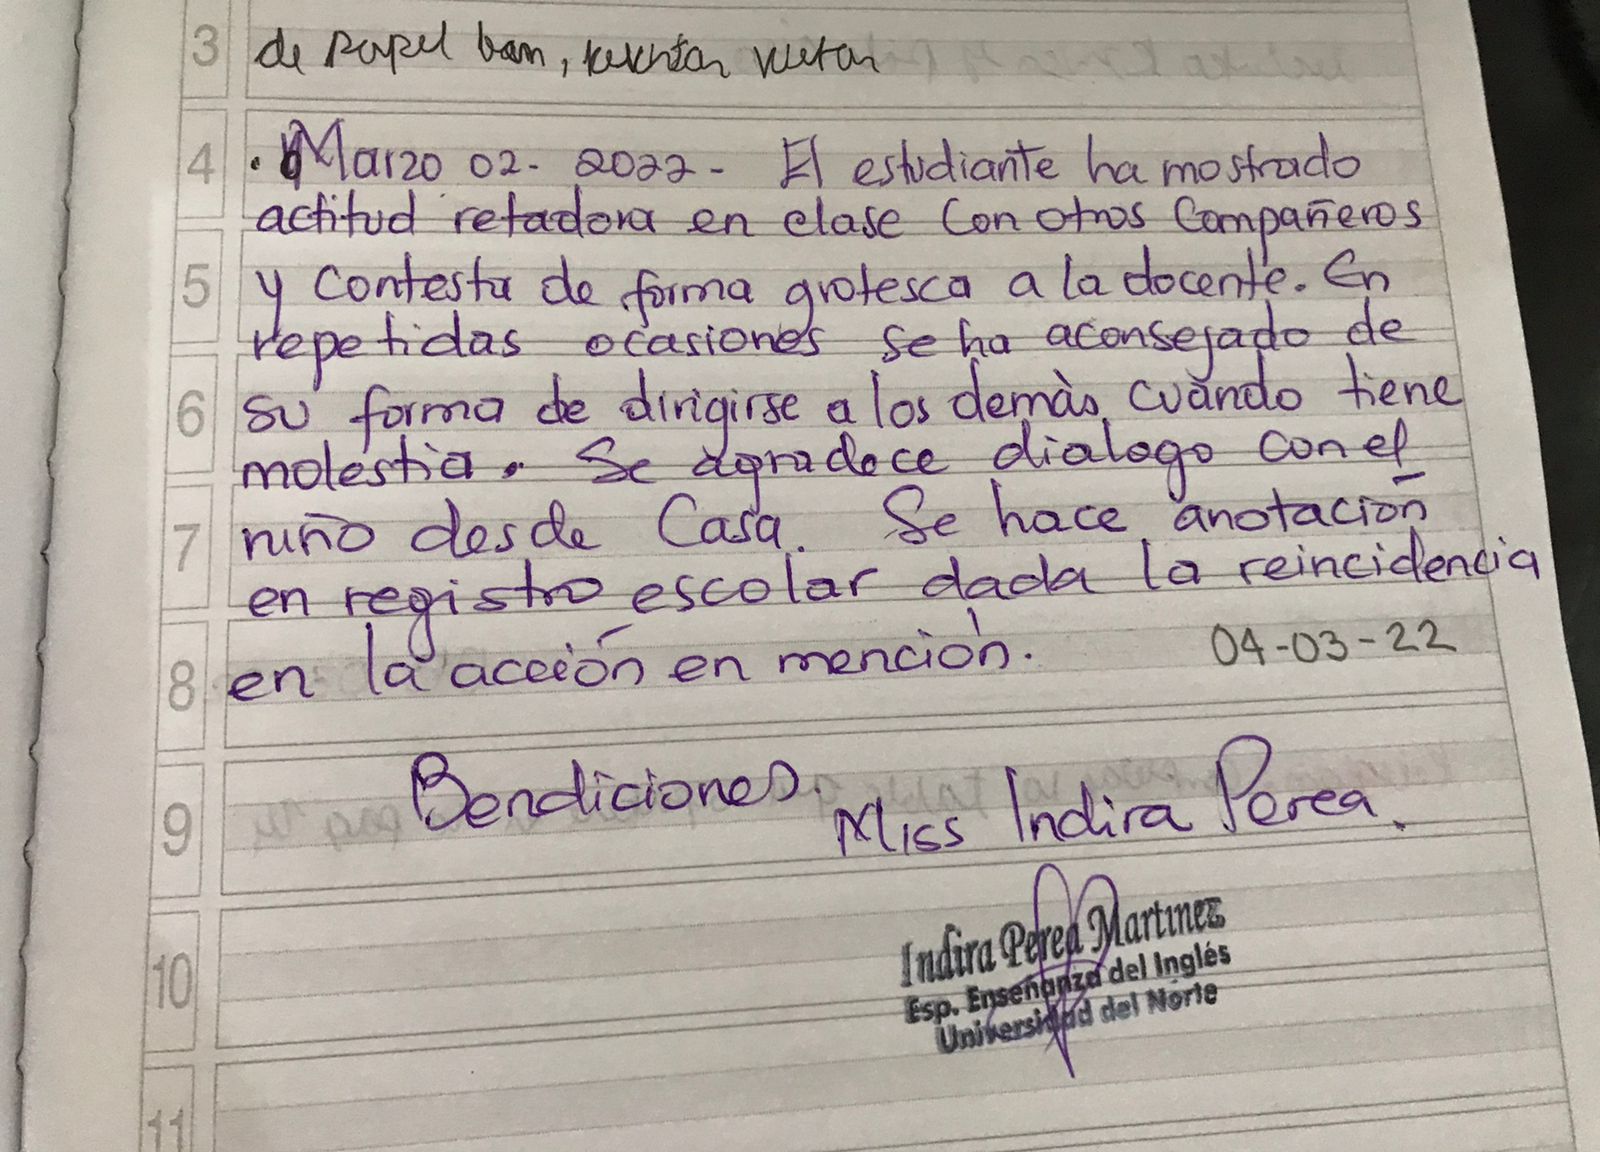 3 de papel
4 . Marzo 02- 2022- El estudiante ha mostrado
actitud retadora en clase con otros Compañeros
5 y contesta de forma grotesca a la docente. En
repetidas ocasiones se ha aconsejado de
6 su forma de dirigirse a los demàs cuàndo tiene
molestia. Se agradece dialogo con el
7 niño desde Casa. Se hace anotación
en registro escolar dada la reincidencia
8 en la acción en mención. 04-03-22
9 Bendiciones.
Miss Indira Perea.
10 Indira Perea Martinez
Esp. Enseñanza del Inglés
Universidad del Norte
11